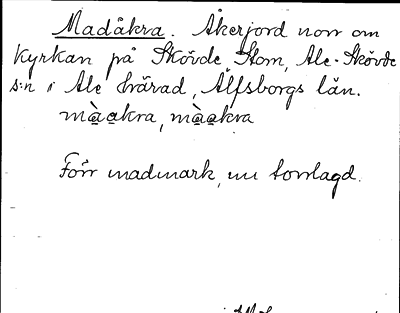 Madåkra. Åkerjord norr om
Kyrkan på Skövde Stom, Ale-Skövde
s:n i Ale härad, Älfsborgs län.
mà̱a̱kra, mà̱a̱kra
Förr madmark, nu torrlagd.